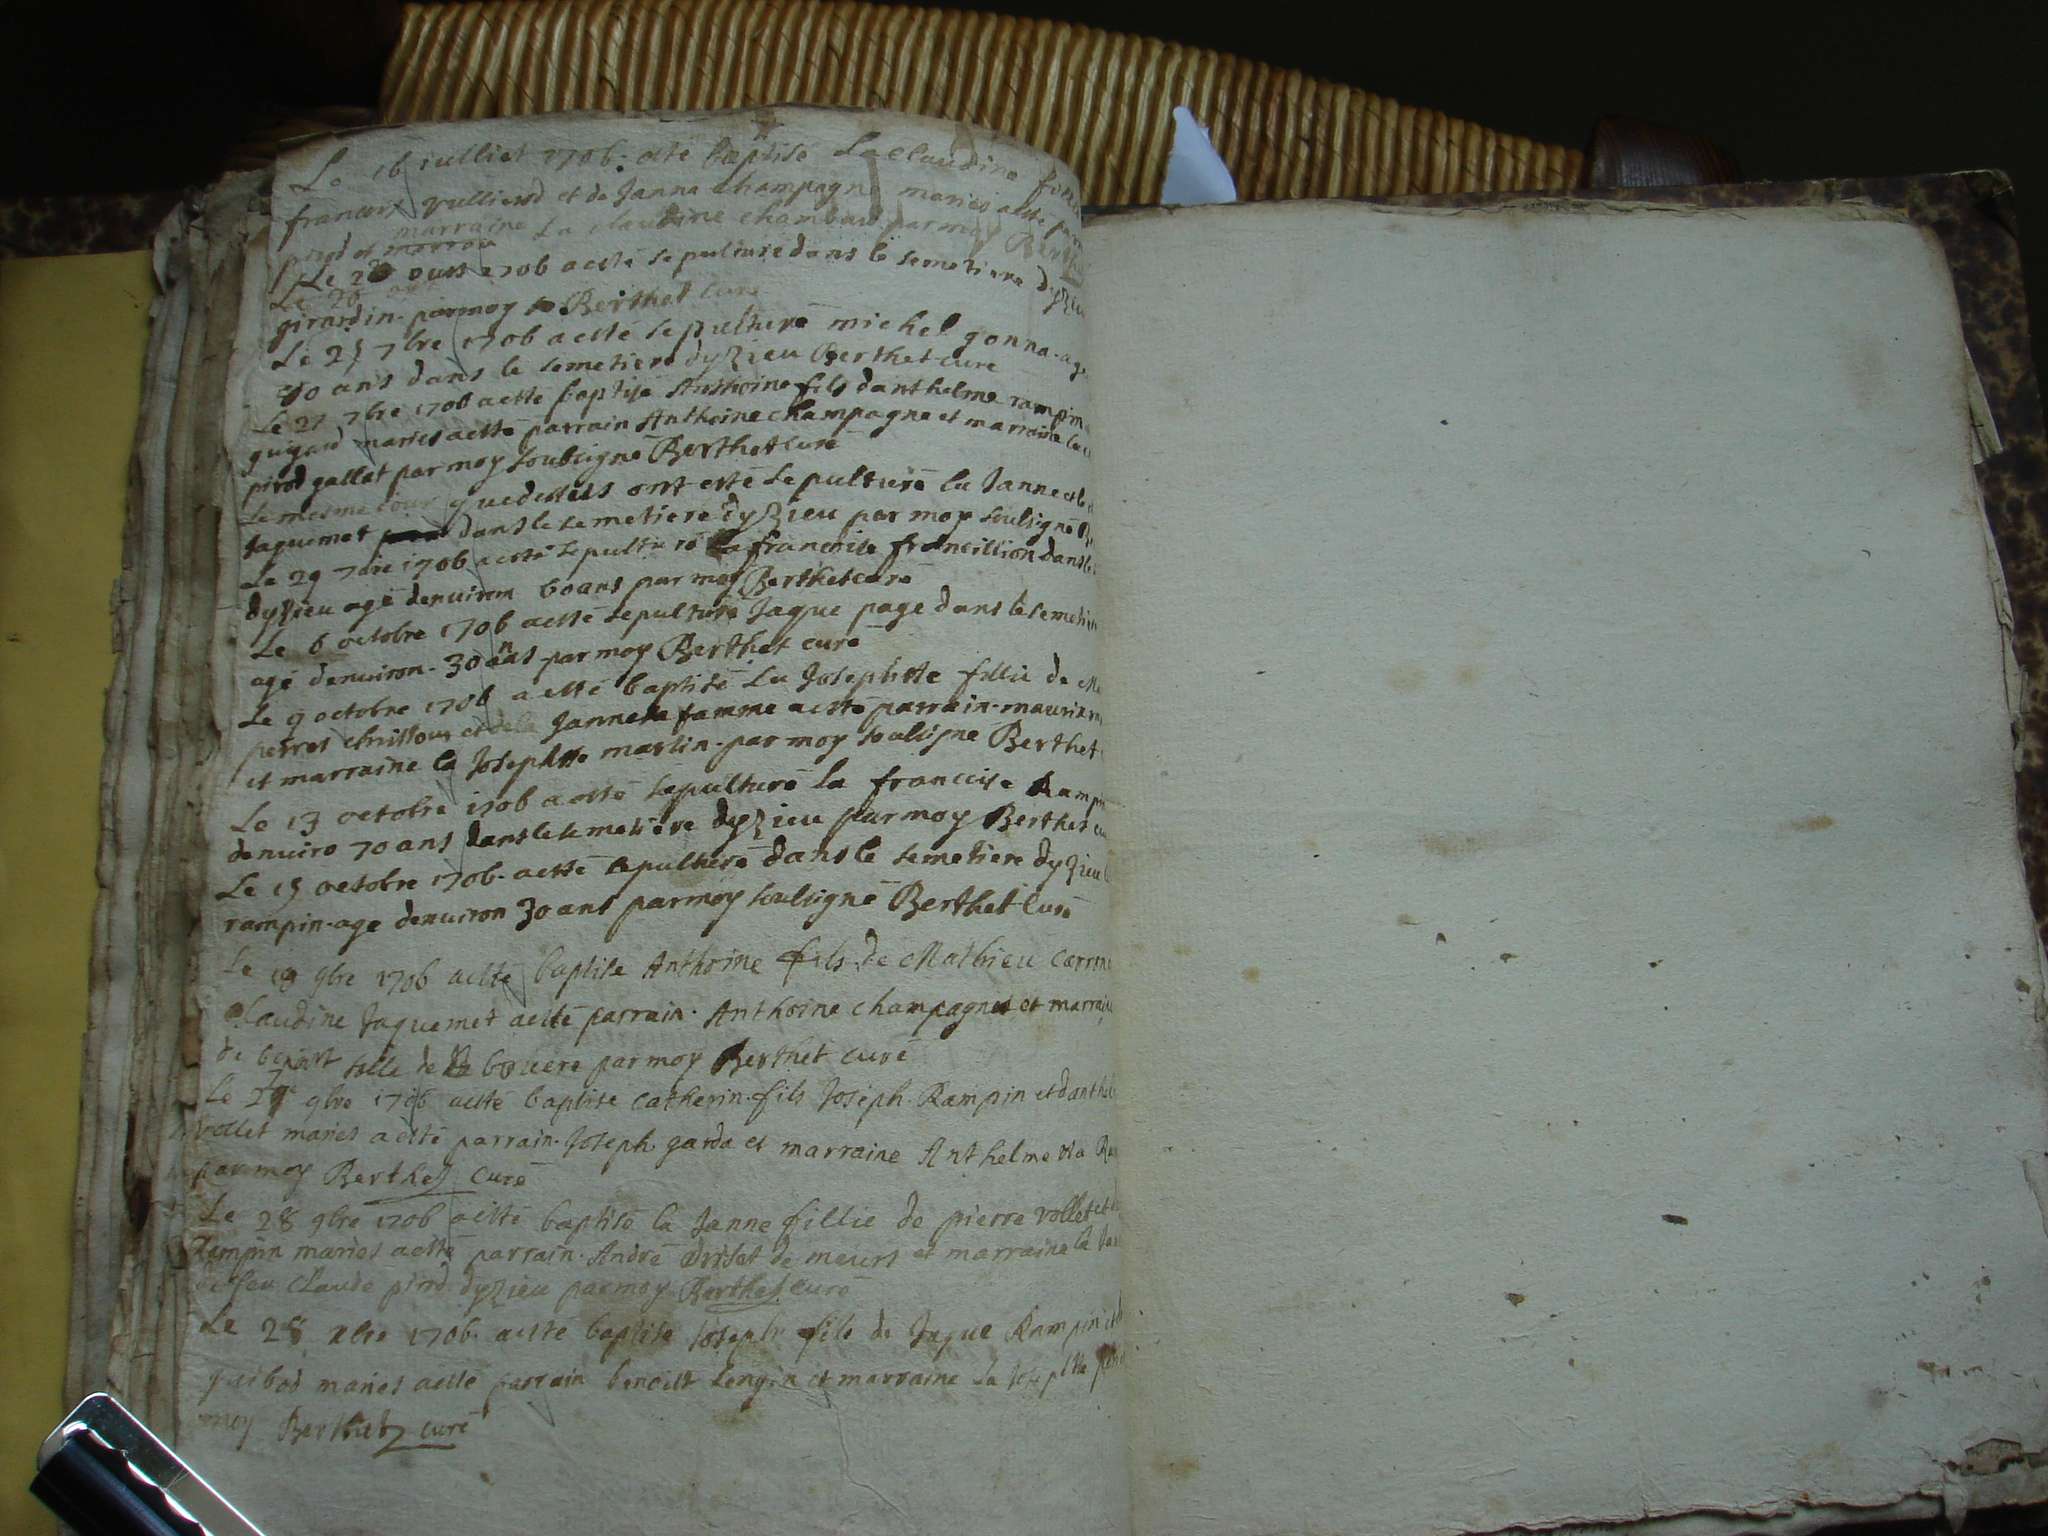 Le 16 julliet 1706 a esté baptisé La Claudine fillie
francois vulliend et de Janna Champagne mariés a esté parr
pirod et marraine La Claudine chambard par moy Berthet
Le 28 oust 1706 a esté sepulturé dans le semetiere dyzieu
girardin par moy Berthet curé
Le 25 7bre 1706 a esté sepulturé michel gonna agé
50 ans dans le semetiere dyzieu Berthet curé
Le 27 7bre 1706 a esté baptisé Anthoine fils danthelme rampin
guigard mariés a esté parrain Anthoine champagne et marraine la
pirod gallet par moy soubsigné Berthet curé
Le mesme jour que dessus ont esté sepulturé la Janne et le
Jaquemet dans le semetiere dyzieu par moy soulsigné
Le 29 7bre 1706 a esté sepulturé la francoise francillion dans le
dyzieu agé denuiron 60 ans par moy Berthet curé
Le 6 octobre 1706 a esté sepulturé Jaque page dans le semetiere
agé denuiron 30 ans par moy Berthet curé
Le 9 octobre 1706 a esté baptisé La Josephtte fillie de
perret et de la Janne sa famme a esté parrain maurix
et marraine la Josephtte martin par moy soulsigné Berthet
Le 13 octobre 1706 a esté sepulturé la francoise Rampin
denuiro 70 ans dans le semetiere dyzieu par moy Berthet cu
Le 15 octobre 1706 a esté sepulturé dans le semetiere dyzieu
rampin agé denuiron 30 ans par moy soulsigné Berthet curé
Le 9bre 1706 a esté baptisé Anthoine fils de Mathieu Carron
Claudine Jaquemet a esté parrain Anthoine champagne et marraine
de benoist solle de bouere par moy Berthet curé
Le 9bre 1706 a esté baptisé Catherin fils Joseph Rampin et danthel
vollet mariés a esté parrain Joseph garda et marraine Anthelme
par moy Berthet curé
Le 28 9bre 1706 a esté baptisé la Janne fillie de pierre vollet et
Rampin mariés a esté parrain André de meurs et marraine la
de feu Claude pirod dyzieu par moy Berthet curé
Le 28 xbre 1706 a esté baptisé Joseph fils de Jaque Rampin et
guibod mariés a esté parrain benoist Lengin et marraine la Josephtte
moy Berthet curé